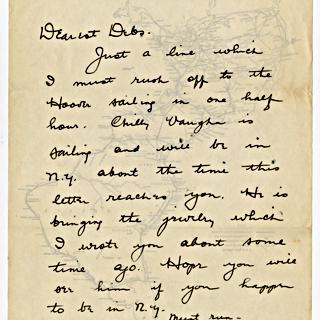 Dearest Debs.
Just a line which
I must rush off to the
Hoover sailing in one half
hour. Chilly Vaughn is
sailing and will be in
N.Y. about the time this
letter reaches you. He is
bringing the jewelry which
I wrote you about some
time ago. Hope you will
see him if you happen
to be in N.Y.
Must run-